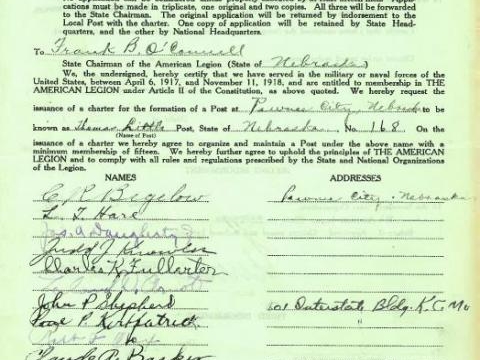 cations must be made in triplicate, one original and two copies. All three will be forwarded
to the State Chairman. The original application will be returned by indorsement to the
Local Post with the charter. One copy of application will be retained by State Head-
quarters, and the other by National Headquarters.
To Frank B. O'Connell
State Chairman of the American Legion (State of Nebraska)
We, the undersigned, hereby certify that we have served in the military or naval forces of the
United States, between April 6, 1917, and November 11, 1918, and are entitled to membership in THE
AMERICAN LEGION under Article II of the Constitution, as above quoted. We hereby request the
issuance of a charter for the formation of a Post at Pawnee City, Nebraska to be
known as Thomas Little Post, State of Nebraska No. 168. On the
(Name of Post)
issuance of a charter we hereby agree to organize and maintain a Post under the above name with a
minimum membership of fifteen. We hereby further agree to uphold the principles of THE AMERICAN
LEGION and to comply with all rules and regulations prescribed by the State and National Organizations
of the Legion.
NAMES ADDRESSES
C. R. Bigelow Pawnee City, Nebraska
L. T. Hare
Jos. A. Daugherty
Charles K. Fullerton
John P. Shepherd 601 Interstate Bldg. K.C. Mo
P. Kirkpatrick
Claude R. Barker